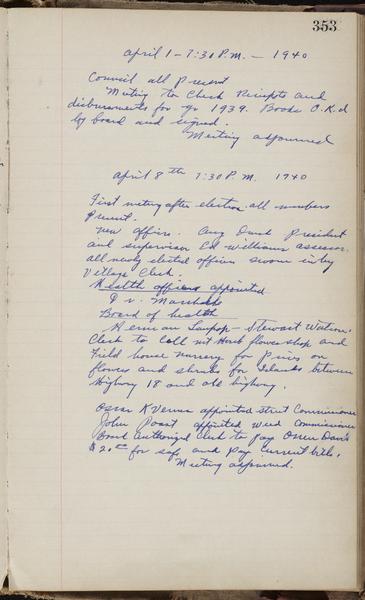 353
April 1 - 7:30 P.M. - 1940
Council all present
Meeting to Check Receipts and
disbursements for yr 1939. Books O.K.d
by board and signed.
Meeting adjourned
April 8th 7:30 P.M. 1940
First meeting after election all members
present.
New officers. Aug Dank president
and supervisor Ed Williams assessor.
all newly elected officers sworn in by
Village Clerk.
Health officer appointed
P v. Marshall
Board of health
Herman - Stewart Watson.
Clerk to Call flower shop and
Field house nursery for prices on
flowers and shrubs for Islands between
Highway 18 and old highway.
Oscar appointed street Commissioner
John appointed Weed Commissioner
Board authorized Clerk to pay
$20.00 for safe and pay current bills.
Meeting adjourned.